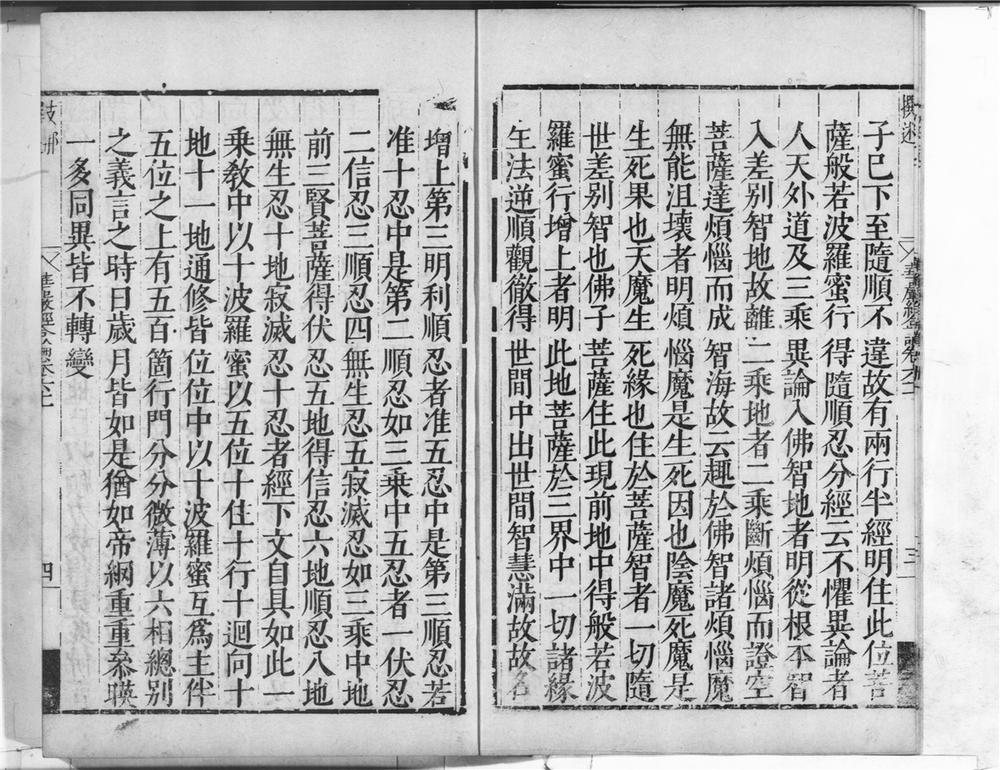 子已下至隨順不違故有兩行半經明住此位菩
薩般若波羅蜜行得隨順忍分經云不懼異論者
人天外道及三乘異論入佛智地者明從根本智
入差別智地故離二乘地者二乘斷煩惱而證空
菩薩達煩惱而成智海故云趣於佛智諸煩惱魔
無能沮壞者明煩惱魔是生死因也陰魔死魔是
生死果也天魔生死緣也住於菩薩智者一切隨
世差別智也佛子菩薩住此現前地中得般若波
羅蜜行增上者明此地菩薩於三界中一切諸緣
生法逆順觀徹得世間中出世間智慧滿故故名
增上第三明利順忍者准五忍中是第三順忍若
准十忍中是第二順忍如三乘中五忍者一伏忍
二信忍三順忍四無生忍五寂滅忍如三乘中地
前三賢菩薩得伏忍五地得信忍六地順忍八地
無生忍十地寂滅忍十忍者經下文自具如此一
乘敎中以十波羅蜜以五位十住十行十迴向十
地十一地通修皆位位中以十波羅蜜互爲主伴
五位之上有五百箇行門分分微薄以六相總別
之義言之時日歲月皆如是猶如帝網重重叅暎
一多同異皆不轉變
四